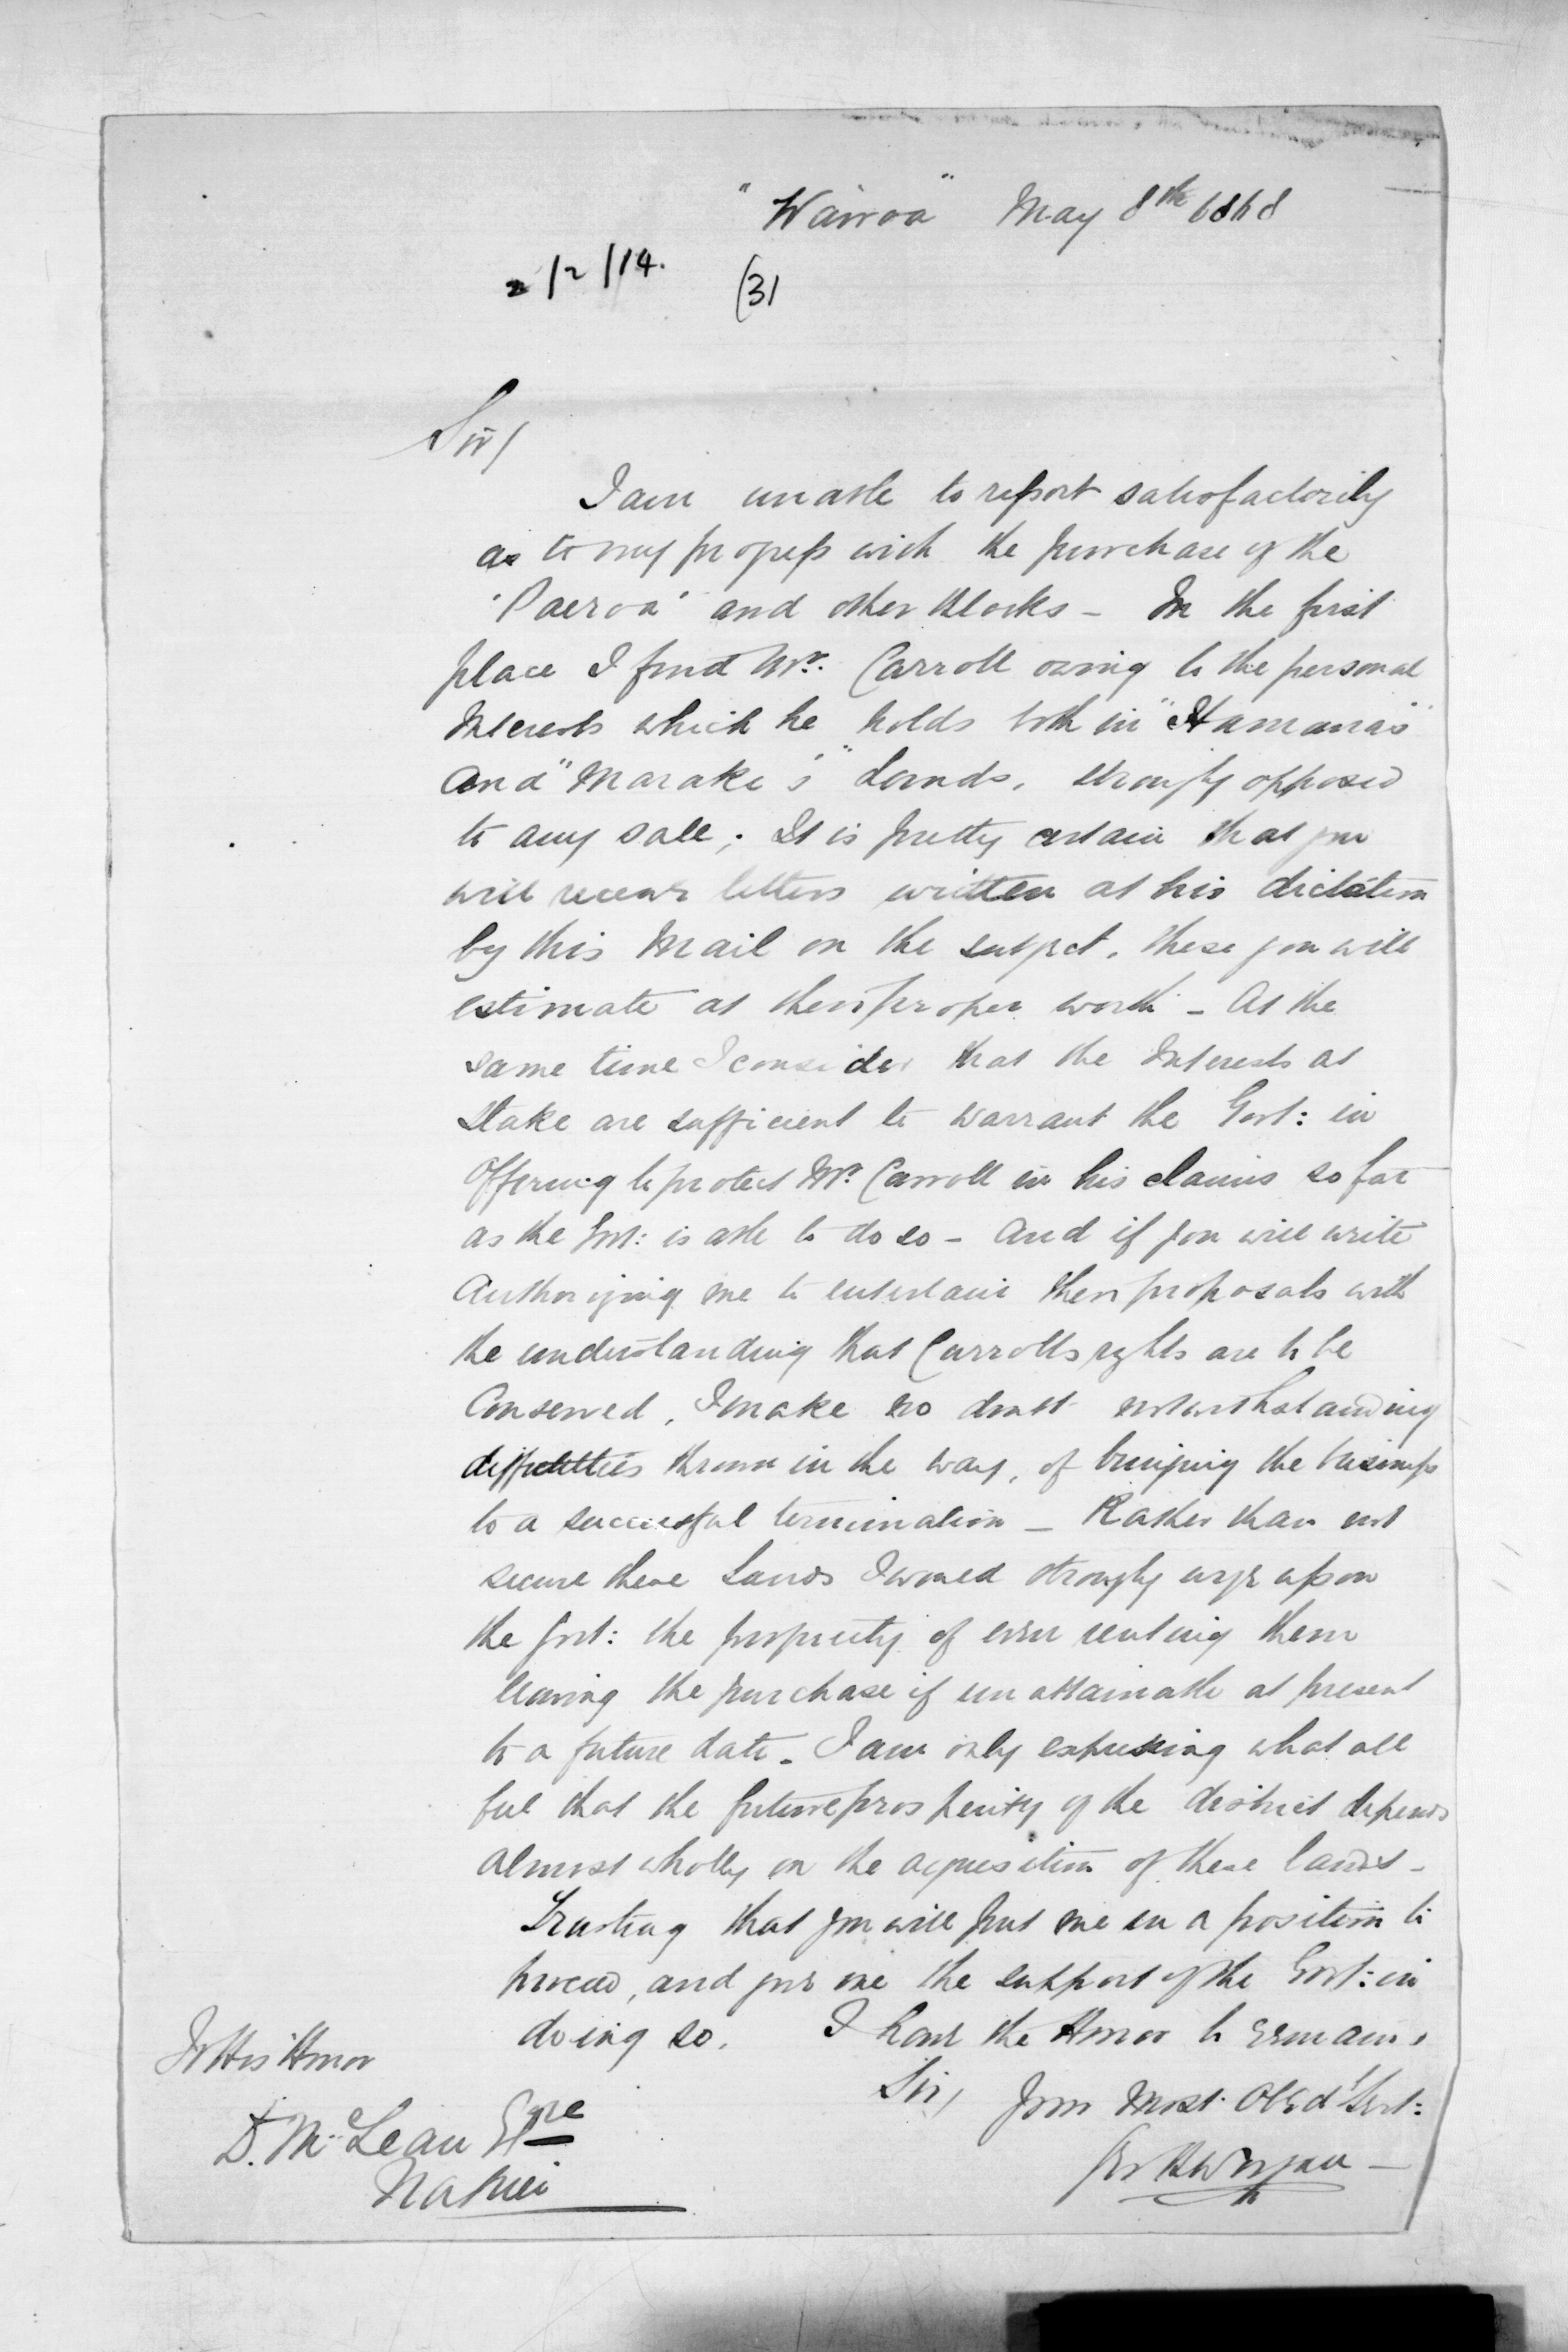 "Wairoa" May 8th 1868
2/2/114. (31
Sir/
I am unable to report satisfactorily
as to my progress with the purchase of the
'Paeroa' and other Blocks - In the first
place I find Mr. Carroll owing to the personal
Interests which he holds both in "Hamana's"
and "Marake's" Lands, strongly opposed
to any sale; It is pretty certain that you
will receive letters written at his dictation
by this Mail on the subject, these you will
estimate at their proper worth - At the
same time I consider that the Interests at
Stake are sufficient to warrant the Govt: in
Offering to protect Mr. Carroll in his claims so far
as the Govt: is able to do so - And if you will write
Authorizing me to entertain their proposals with
the understanding that Carrolls rights are to be
Conserved, I make no doubt notwithstanding
difficulties thrown in the way, of bringing the business
to a successful termination - Rather than not
secure these Lands I would strongly urge upon
the Govt: the propriety of even renting them
leaving the purchase if unattainable at present
to a future date - I am only expressing what all
feel that the future prosperity of the district depends
almost wholly on the acquisition of these lands -
Trusting that you will put me in a position to
proceed, and give me the support of the Govt: in
doing so. I have the Honor to remain,
Sir, Your Most Obed't Servt:
To His Honor
D. McLean Esqre
Napier